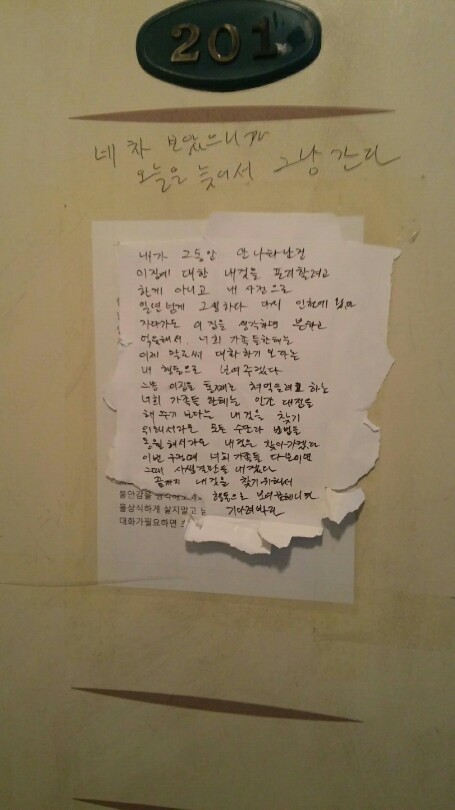 201
네 차 보았으니까
오늘은 늦어서 그냥 간다
내가 그동안 안 나타난건
이집에 대한 내것을 포기할려고
한게 아니고 내 사정으로
일년 넘게 고생하다 다시 인천에 왔다
자다가도 이 집을 생각하면 분하고
억울해서. 너희 가족들한테는
이제 말로써 대화하기 보다는
내 행동으로 보여주겠다
이집을 통째로 쳐먹을려고 하는
너희 가족들 한테는 인간 대접을
해 주기 보다는 내것을 찾기
위해서라도 모든 수단과 방법을
동원 해서라도 내것을 찾아가겠다
이번 구정때 너희 가족들 다 모이면
그때 사생결단을 내겠다
끝까지 내것을 찾기위해서
행동으로 보여줄테니까
기다려봐라
불안감을
몰상식하게 살지말고
대화가필요하면